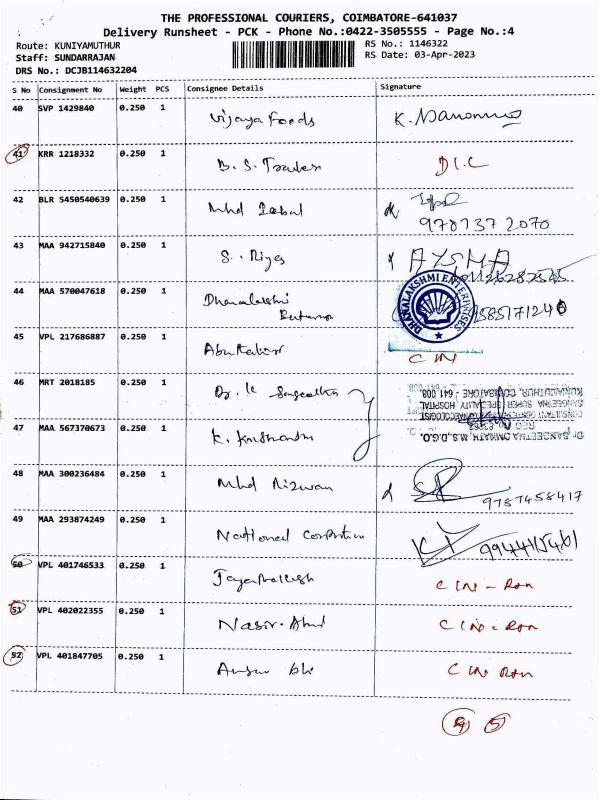 THE PROFESSIONAL COURIERS, COIMBATORE-641037
Delivery Runsheet - PCK - Phone No.:0422-3505555 - Page No.:4
Route: KUNIYAMUTHUR RS No.: 1146322
Staff: SUNDARRAJAN RS Date: 03-Apr-2023
DRS No.: DCJB114632204
S No Consignment No Weight PCS Consignee Details Signature
40 SVP 1429840 0.250 1 Vijaya Foods K.
41 KRR 1218332 0.250 1 B. S. Traders D.L.C
42 BLR 5450540639 0.250 1 Mhd Iqbal
9787372070
43 MAA 942715840 0.250 1 S. Riyas AYSHA
44 MAA 570047618 0.250 1 Dhanalakshmi
DHANALAKSHMI ENTERPRISES
45 VPL 217686887 0.250 1 C IN
46 MRT 2018185 0.250 1 Dr. K Sangeetha
47 MAA 567370673 0.250 1 K.
Dr SANGEETHA OMNATH, M.S,D.G.O.
SANGEETHA SUPER SPECIALITY HOSPITAL
KUNIAMUTHUR, COIMBATORE - 641 008.
48 MAA 300236484 0.250 1 Mhd Rizwan 9787458417
49 MAA 293874249 0.250 1 National
50 VPL 401746533 0.250 1 C IN - Ron
51 VPL 402022355 0.250 1 Nasir C IN - Ron
52 VPL 401847705 0.250 1 C IN Ron